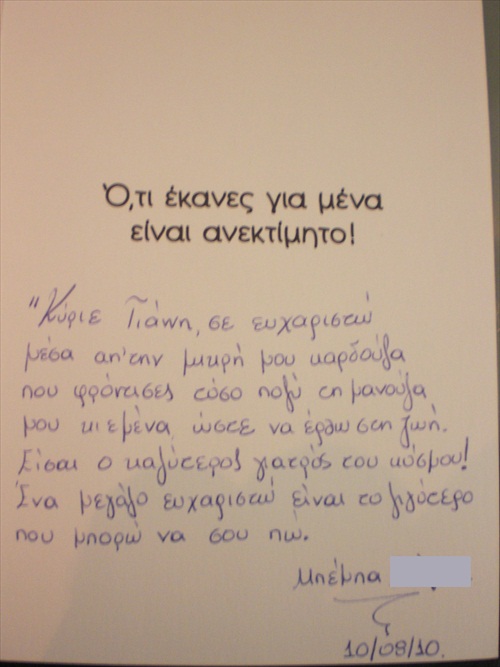 Ό,τι έκανες για μένα
είναι ανεκτίμητο!
"Κύριε Γιάννη, σε ευχαριστώ
μέσα απ'την μικρή μου καρδούλα
που φρόντισες τόσο πολύ τη μανούλα
μου κι εμένα ώστε να έρθω στη ζωή.
Είσαι ο καλύτερος γιατρός του κόσμου!
Ένα μεγάλο ευχαριστώ είναι το λιγότερο
που μπορώ να σου πω.
Μπέμπα
10/08/10.